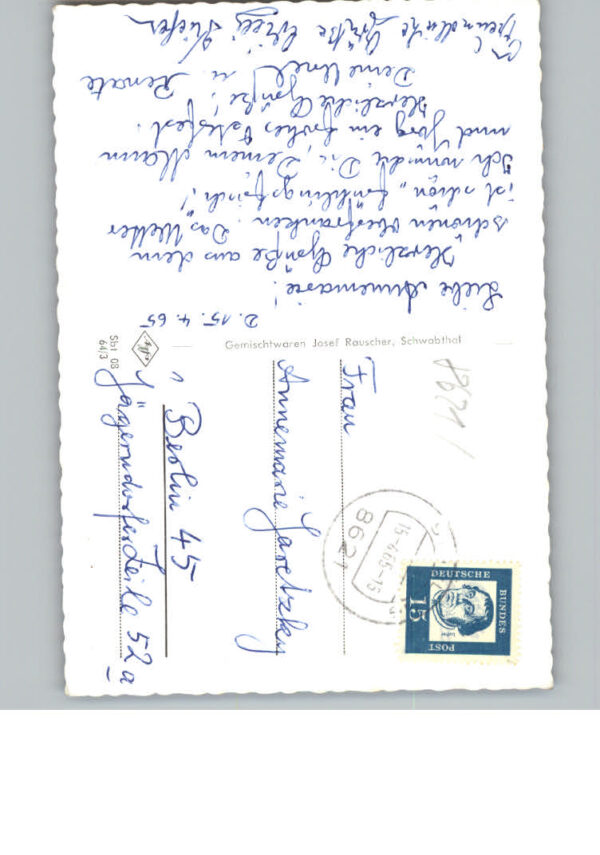 D. 15. 4. 65
Liebe Annemarie!
Herzliche Grüße aus dem
schönen Oberfranken. Das Wetter
ist schön „frühlingsfrisch“!
Ich wünsche Dir, Deinem Mann
und Jörg ein frohes Osterfest.
Herzliche Grüße!
Deine u. Renate
Freundliche Grüße
Gemischtwaren Josef Rauscher, Schwabthal
Sbt 08
64/3
Frau
Annemarie Jaretzky
1 Berlin 45
Jägerndorfer Zeile 52a
8621
15.-4.65-15
8621
DEUTSCHE
BUNDES
POST
15
Luther